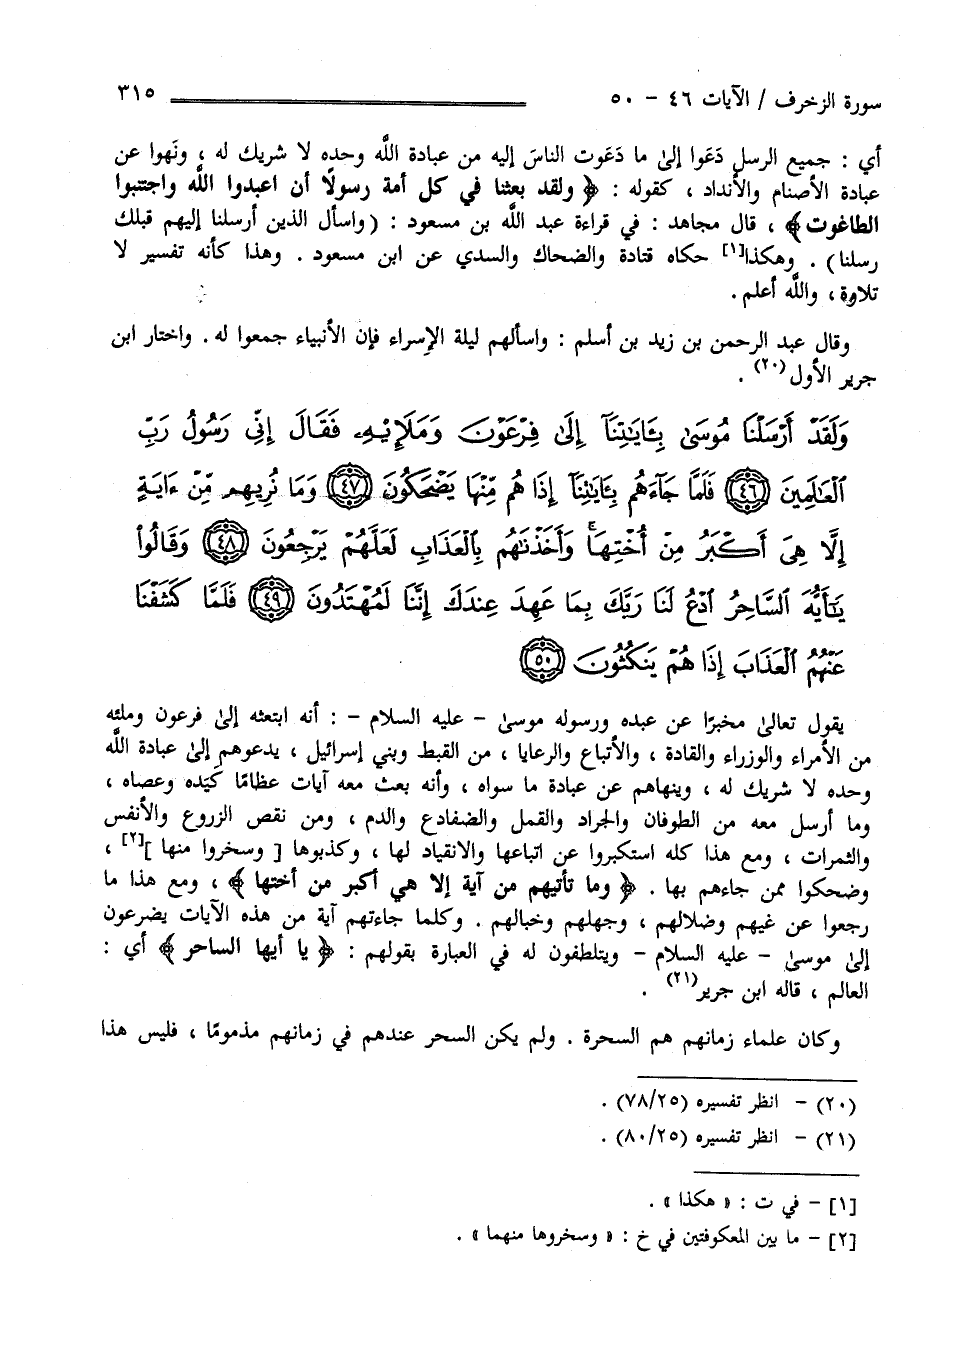 سورة الزخرف / الآيات ٤٦ - ٥٠ ٣١٥
أي : جميع الرسل دَعَوا إلىٰ ما دَعَوت الناسَ إليه من عبادة اللَّه وحده لا شريك له ، ونَهوا عن
عبادة الأصنام والأنداد ، كقوله : ﴿ ولقد بعثنا في كل أمة رسولًا أن اعبدوا اللَّه واجتنبوا
الطاغوت ﴾ ، قال مجاهد : في قراءة عبد اللَّه بن مسعود : (واسأل الذين أرسلنا إليهم قبلك
رسلنا) . وهكذا[١] حكاه قتادة والضحاك والسدي عن ابن مسعود . وهذا كأنه تفسير لا
تلاوة ، واللَّه أعلم .
وقال عبد الرحمن بن زيد بن أسلم : واسألهم ليلة الإسراء فإن الأنبياء جمعوا له . واختار ابن
جرير الأول(٢٠) .
وَلَقَدْ أَرْسَلْنَا مُوسَىٰ بِـَٔايَـٰتِنَآ إِلَىٰ فِرْعَوْنَ وَمَلَإِيْهِۦ فَقَالَ إِنِّي رَسُولُ رَبِّ
ٱلْعَـٰلَمِينَ ﴿٤٦﴾ فَلَمَّا جَآءَهُم بِـَٔايَـٰتِنَآ إِذَا هُم مِّنْهَا يَضْحَكُونَ ﴿٤٧﴾ وَمَا نُرِيهِم مِّنْ ءَايَةٍ
إِلَّا هِىَ أَكْبَرُ مِنْ أُخْتِهَا ۚ وَأَخَذْنَـٰهُم بِٱلْعَذَابِ لَعَلَّهُمْ يَرْجِعُونَ ﴿٤٨﴾ وَقَالُوا۟
يَـٰٓأَيُّهَ ٱلسَّاحِرُ ٱدْعُ لَنَا رَبَّكَ بِمَا عَهِدَ عِندَكَ إِنَّنَا لَمُهْتَدُونَ ﴿٤٩﴾ فَلَمَّا كَشَفْنَا
عَنْهُمُ ٱلْعَذَابَ إِذَا هُمْ يَنكُثُونَ ﴿٥٠﴾
يقول تعالىٰ مخبرًا عن عبده ورسوله موسىٰ - عليه السلام - : أنه ابتعثه إلىٰ فرعون وملئه
من الأمراء والوزراء والقادة ، والأتباع والرعايا ، من القبط وبني إسرائيل ، يدعوهم إلىٰ عبادة اللَّه
وحده لا شريك له ، وينهاهم عن عبادة ما سواه ، وأنه بعث معه آيات عظامًا كَيَده وعصاه ،
وما أرسل معه من الطوفان والجراد والقمل والضفادع والدم ، ومن نقص الزروع والأنفس
والثمرات ، ومع هذا كله استكبروا عن اتباعها والانقياد لها ، وكذبوها [ وسخروا منها ][٢] ،
وضحكوا ممن جاءهم بها . ﴿ وما تأتيهم من آية إلا هي أكبر من أختها ﴾ ، ومع هذا ما
رجعوا عن غيهم وضلالهم ، وجهلهم وخبالهم . وكلما جاءتهم آية من هذه الآيات يضرعون
إلىٰ موسىٰ - عليه السلام - ويتلطفون له في العبارة بقولهم : ﴿ يا أيها الساحر ﴾ أي :
العالم ، قاله ابن جرير(٢١) .
وكان علماء زمانهم هم السحرة . ولم يكن السحر عندهم في زمانهم مذمومًا ، فليس هذا
(٢٠) - انظر تفسيره (٧٨/٢٥) .
(٢١) - انظر تفسيره (٨٠/٢٥) .
[١] - في ت : « هكذا » .
[٢] - ما بين المعكوفتين في خ : « وسخروها منهما » .